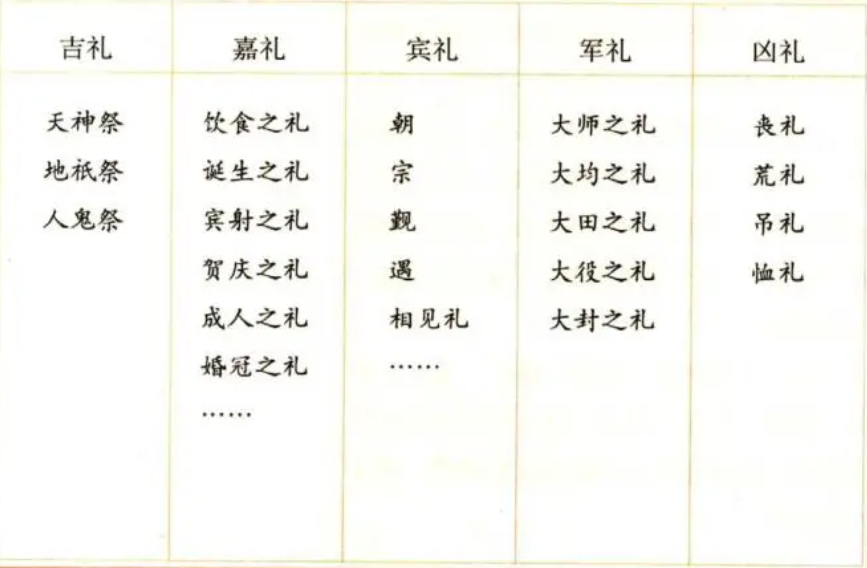 吉礼 嘉礼 宾礼 军礼 凶礼
天神祭 饮食之礼 朝 大师之礼 丧礼
地祇祭 诞生之礼 宗 大均之礼 荒礼
人鬼祭 宾射之礼 觐 大田之礼 吊礼
贺庆之礼 遇 大役之礼 恤礼
成人之礼 相见礼 大封之礼
婚冠之礼 ……
……